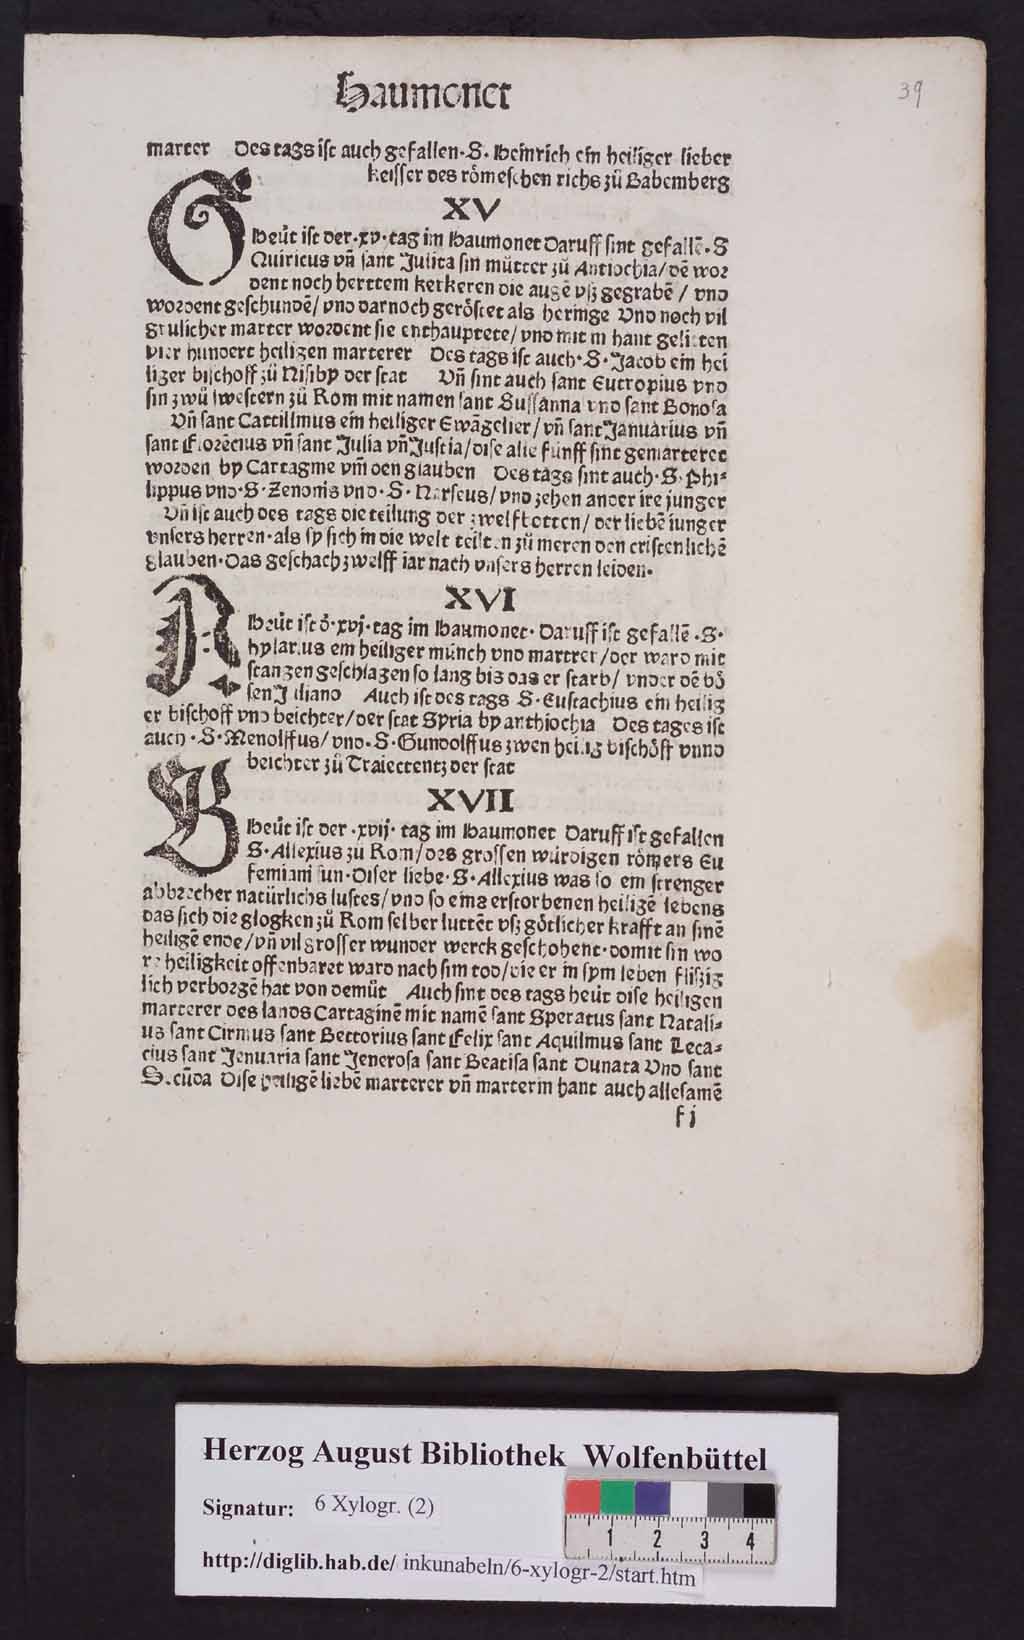 Haumonet
39
marter Des tags ist auch gefallen·S·Heinrich ein heiliger lieber
keisser des römeschen richs zů Babemberg
XV
Heůt ist der·xv·tag im Haumonet Daruff sint gefallē·S
Quiricus vñ sant Julita sin můtter zů Antiochia/dē wor
dent noch herttem kerkeren die augē vß gegrabē/ vnd
wordent geschundē/ vnd darnoch geröstet als heringe Vnd noch vil
grulicher marter wordent sie enthauptete/vnd mit in hant gelitten
vier hundert heiligen marterer Des tags ist auch·S·Jacob ein hei
liger bischoff zů Nisiby der stat Vñ sint auch sant Eutropius vnd
sin zwů swestern zů Rom mit namen sant Sussanna vnd sant Bonosa
Vñ sant Cattillinus ein heiliger Ewāgelier/ vñ sant Januarius vñ
sant Florēcius vñ sant Julia vñ Justia/dise alle fünff sint gemarteret
worden by Cartagine vm den glauben Des tags sint auch·S·Phi⸗
lippus vnd·S·Zenonis vnd·S·Narseus/vnd zehen ander ire junger
Vñ ist auch des tags die teilung der zwelfbotten/ der liebē iunger
vnsers herren·als sy sich in die welt teilten zů meren den cristenlichē
glauben·Das geschach zwelff iar nach vnsers herren leiden·
XVI
Heůt ist ð·xvj·tag im Haumonet·Daruff ist gefallē·S·
hylarius ein heiliger münch vnd martrer/der ward mit
stangen geschlagen so lang bis das er starb/ vnder dē bö
sen Juliano Auch ist des tags S·Eustachius ein heilig
er bischoff vnd beichter/der stat Syria by anthiochia Des tages ist
auch·S·Menolffus/vnd·S·Gundolffus zwen heilig bischöff vnnd
beichter zů Traiectentz der stat
XVII
B Heůt ist der·xvij·tag im Haumonet Daruff ist gefallen
S·Allexius zů Rom/des grossen würdigen römers Eu
femiani sun·Diser liebe·S·Allexius was so ein strenger
abbrecher natürlichs lustes/vnd so eins erstorbenen heiligē lebens
das sich die glogken zů Rom selber luttēt vß götlicher krafft an sinē
heiligē ende/vñ vil grosser wunder werck geschohent·domit sin wo
re heiligkeit offenbaret ward nach sim tod/die er in sym leben flißig
lich verborgē hat von demůt Auch sint des tags heůt dise heiligen
marterer des lands Cartaginē mit namē sant Speratus sant Natali⸗
us sant Cirinus sant Bettorius sant Felix sant Aquilinus sant Leca⸗
cius sant Jenuaria sant Jenerosa sant Beatisa sant Dunata Vnd sant
Secūda Dise heiligē liebē marterer vñ marterin hant auch allesamē
fj
Herzog August Bibliothek Wolfenbüttel
Signatur: 6 Xylogr. (2)
http://diglib.hab.de/ inkunabeln/6-xylogr-2/start.htm
1 2 3 4